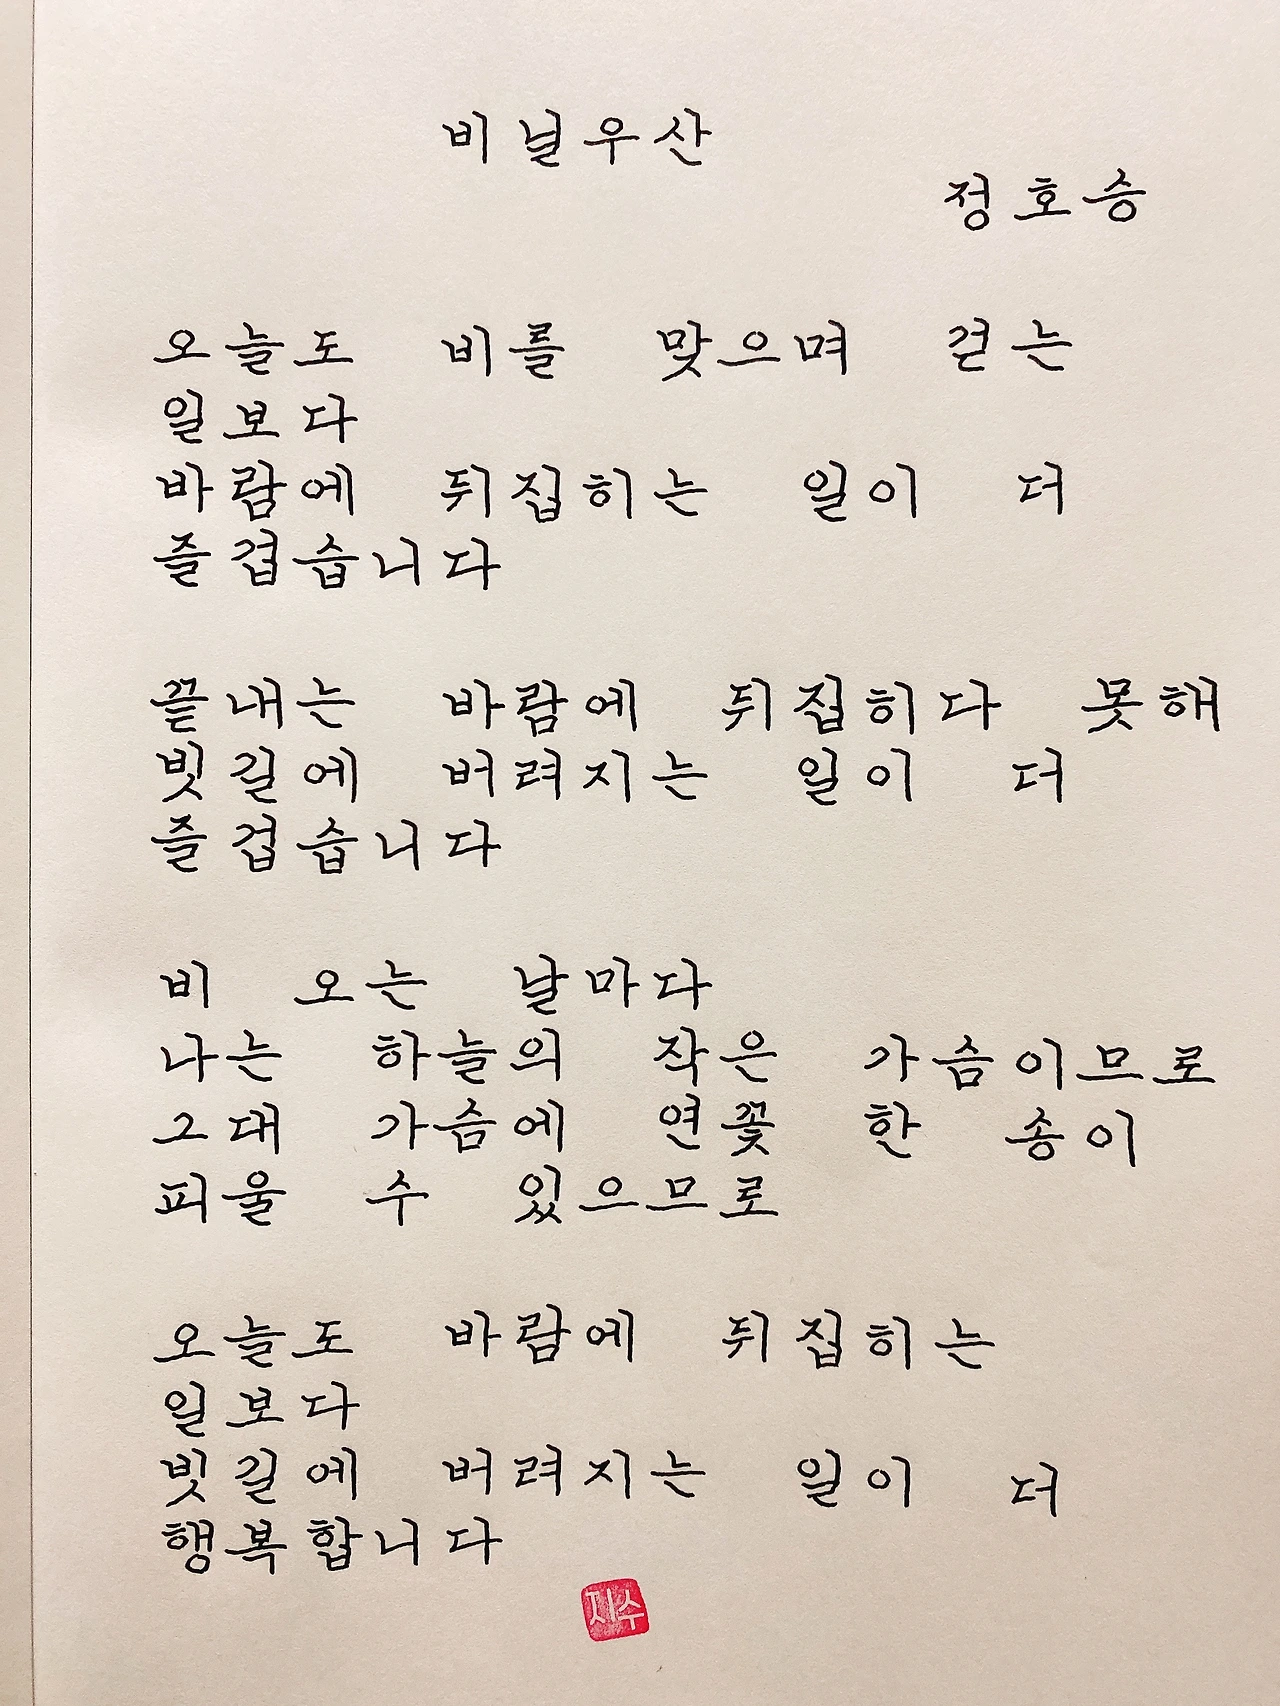 비닐우산
정호승
오늘도 비를 맞으며 걷는
일보다
바람에 뒤집히는 일이 더
즐겁습니다
끝내는 바람에 뒤집히다 못해
빗길에 버려지는 일이 더
즐겁습니다
비 오는 날마다
나는 하늘의 작은 가슴이므로
그대 가슴에 연꽃 한 송이
피울 수 있으므로
오늘도 바람에 뒤집히는
일보다
빗길에 버려지는 일이 더
행복합니다
지수